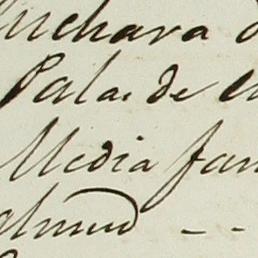 uchara d
Palas de
Media fan
almud - -